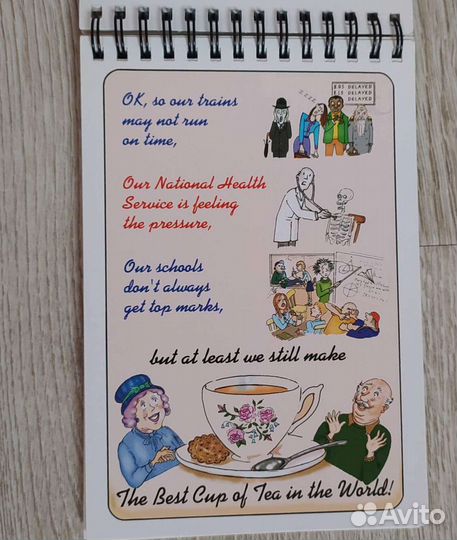 OK, so our trains
may not run
on time,
zzzz
8.05 DELAYED
8.15 DELAYED
DELAYED
Our National Health
Service is feeling
the pressure,
Our schools
don't always
get top marks,
but at least we still make
The Best Cup of Tea in the World!
Avito